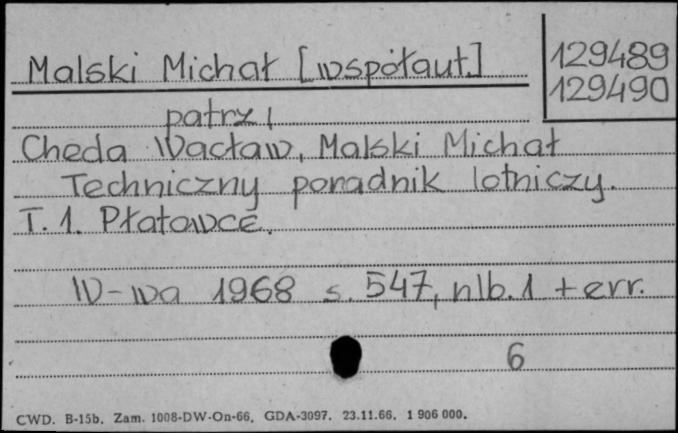 Malski Michał [współaut.]
129489
129490
patrz!
Cheda Wacław, Malski Michał
Techniczny poradnik lotniczy.
T. 1. Płatowce.
W-wa 1968 s. 547, nlb. 1 + err.
6
CWD. B-15b. Zam. 1008-DW-On-66. GDA-3097. 23.11.66. 1 906 000.